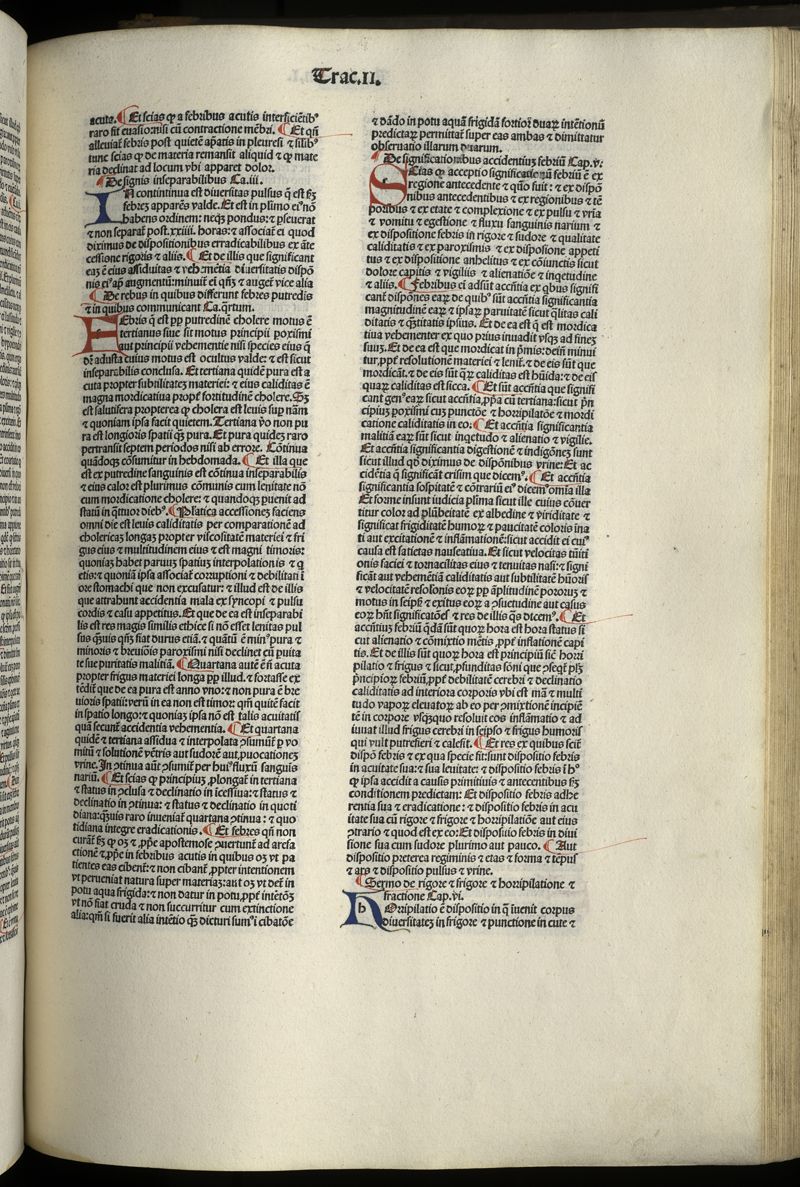 Trac.II.
acuta. Et scias ꝙ a febribus acutis interficiētibꝰ
raro fit euasio nisi cū contractione mēbri. Et qn̄
alleuiat̄ febris post quietē apatis in pleuresi ⁊ silibꝰ
tunc scias ꝙ de materia remansit aliquid ⁊ ꝙ mate
ria declinat ad locum vbi apparet dolor.
De signis inseparabilibus Ca.iii.
IN continua est diuersitas pulsus
febres apparēs valde. Et est in plimo eiꝰ nō
habens ordinem: neqꝫ pondus: ⁊ pseuerat
⁊ non separat̄ post .xxiiii. horas: ⁊ associat̄ ei quod
diximus de dispositionibus erradicabilibus ex āte
cessione rigoris ⁊ aliis. Et de illis que significant
eas ē eius assiduitas ⁊ vehemētia diuersitatis dispō
nis augmentū: minuit̄ ei ⁊ auget̄ vice alia
De rebus in quibus differunt febres putredis
⁊ in quibus communicant Ca.qrtum.
FEbris q̄ est pp putredinē cholere motus ē
tertianus siue sit motus principii poximi
aut principii vehementie nisi species eius q̄
dē adusta cuius motus est ocultus valde: ⁊ est sicut
inseparabilis conclusa. Et tertiana quidē pura est a
cuta propter subtilitatē materiei: ⁊ eius caliditas ē
magna mordicatiua propt̄ fortitudinē cholere. Sꝫ
est salutifera propterea ꝙ cholera est leuis sup nām
⁊ quoniam ipsa facit quietem. Tertiana vō non pu
ra est longioris spatii qꝫ pura. Et pura quideꝫ raro
pertransit septem periodos nisi ab errore. Cōtinua
quādoqꝫ cōsumitur in hebdomada. Et illa que
est ex putredine sanguinis est cōtinua inseparabilis
⁊ eius calor est plurimus cōmunis cum lenitate nō
cum mordicatione cholere: ⁊ quandoqꝫ puenit ad
statū in q̄tuor diebꝰ. Platica accessiones faciens
omni die est leuis caliditatis per comparationē ad
cholericas longa propter viscositatē materiei ⁊ fri
gus eius ⁊ multitudinem eius ⁊ est magni timoris:
quoniaꝫ habet paruuꝫ spatiuꝫ interpolationis ⁊ q
etis: ⁊ quoniā ipsa associat̄ corruptioni ⁊ debilitati ī
ore stomachi que non excusatur: ⁊ illud est de illis
que attrahunt accidentia mala ex syncopi ⁊ pulsu
cordis ⁊ casu appetitus. Et que de ea est inseparabi
lis est res magis similis ethice si nō esset lenitas pul
sus qꝫuis qꝫ fiat durus etiā. ⁊ quātū ē minꝰ pura ⁊
minoris ⁊ breuioris paroxismi nisi declinet cū puita
te sue puritatis malitiā. Quartana autē ē nō acuta
propter frigus materiei longa pp illud. ⁊ fortasse ex
tēdit̄ que de ea pura est anno vno: ⁊ non pura ē bre
uioris spatii: verū in ea non est timor: qm̄ quitē facit
in spatio longo: ⁊ quoniaꝫ ipsa nō est talis acuitatis
quā secunt̄ accidentia vehementia. Et quartana
quidē ⁊ tertiana assidua ⁊ interpolata ꝯsumūt̄ p vo
mitū ⁊ solutionē vētris aut sudorē aut puocationeꝫ
vrine. In ꝯtinua aūt ꝯsumit̄ per huiꝰ fluxū sanguis
nariū. Et scias ꝙ principiuꝫ plongat̄ in tertiana
⁊ status in ꝯclusa ⁊ declinatio in icessiua: ⁊ status ⁊
declinatio in ꝯtinua: ⁊ status ⁊ declinatio in quoti
diana: qꝫuis raro inueniat̄ quartana ꝯtinua: ⁊ quo
tidiana integre eradicationis. Et febres qn̄ non
curāt̄ sꝫ ꝙ oꝫ ⁊ ppe apostemose ꝯuertunt̄ ad arefa
ctionē ⁊ ppe in febribus acutis in quibus oꝫ vt pa
tientes eas cibent̄: ⁊ non cibant̄ ppter intentionem
vt perueniat natura super materiaꝫ: aut oꝫ vt det̄ in
potu aqua frigida: ⁊ non datur in potu ppt̄ intētōꝫ
vt nō fiat cruda ⁊ non succurritur cum extinctione
alia: qm̄ si fuerit alia intētio qꝫ dicturi sumꝰ ī cibatōe
⁊ dādo in potu aquā frigidā fortior duaꝝ intētionū
predictaꝝ permittat̄ super eas ambas ⁊ dimittatur
obseruatio illarum duarum.
De significationibus accidentiuꝫ febriū Cap.v.
SCias ꝙ acceptio significationū febriū ē ex
regione antecedente ⁊ quō fuit: ⁊ ex dispō
nibus antecedentibus ⁊ ex regionibus ⁊ tē
poribus ⁊ ex etate ⁊ complexione ⁊ ex pulsu ⁊ vrīa
⁊ vomitu ⁊ egestione ⁊ fluxu sanguinis narium ⁊
ex dispositione febris in rigore ⁊ sudore ⁊ qualitate
caliditatis ⁊ ex paroxismis ⁊ ex dispositione appeti
tus ⁊ ex dispositione anhelitus ⁊ ex cōiunctis sicut
dolore capitis ⁊ vigiliis ⁊ alienatiōe ⁊ inqetudine
⁊ aliis. Febribus ei adsūt accn̄tia ex qbus signifi
cant̄ dispōnes eaꝝ: de quibꝰ sūt accn̄tia significantia
magnitudinē eaꝝ ⁊ ipsaꝝ paruitatē sicut qlitas cali
ditatis ⁊ qtitatis ipsius. Et de ea est q̄ est mordica
tiua vehementer ex quo prius inuadit vsqꝫ ad fineꝫ
suuꝫ. Et de ea est que mordicat in pmis: dein̄ minui
tur ppt̄ resolutionē materiei ⁊ lenit̄: ⁊ de eis sūt que
mordicāt: ⁊ de eis sūt qꝝ caliditas est hūida: ⁊ de eis
quaꝝ caliditas est sicca. Et sūt accn̄tia que signifi
cant genꝰ eaꝝ sicut accn̄tia ppa cū tertiana: sicut pn̄
cipiuꝫ poxismi cuꝫ punctōe ⁊ horripilatōe ⁊ mordi
catione caliditatis in eo: Et accn̄tia significantia
malitiā eaꝝ sūt sicut inqetudo ⁊ alienatio ⁊ vigilie.
Et accn̄tia significantia digestionē ⁊ indigōneꝫ sunt
sicut illud qd̄ diximus de dispōnibus vrine: Et ac
cidētia q̄ significāt crisim que dicemꝰ. Et accn̄tia
significantia sospitatē ⁊ cōtrariū eiꝰ dicemꝰ omīa illa
Et forme insunt iudicia plima sicut ille cuius cōuer
titur color ad plūbeitatē ex albedine ⁊ viriditate ⁊
significat frigiditatē humoꝝ ⁊ paucitatē coloris ina
ti aut excitationē ⁊ inflāmationē: sicut accidit ei cuiꝰ
causa est satietas nauseatiua. Et sicut velocitas tūiti
onis faciei ⁊ tornacilitas eius ⁊ tenuitas nasi: ⁊ signi
ficāt aut vehemētiā caliditatis aut subtilitatē hūoris
⁊ velocitatē resolōnis eoꝝ pp āplitudinē pororuꝫ ⁊
motus in seipso ⁊ exitus eoꝝ a ꝯsuetudine aut casus
eoꝝ hn̄t significatōeꝫ ⁊ res de illis qꝫ dicemꝰ. Et
accn̄tiuꝫ febriū qdā sūt quoꝝ hora est hora status si
cut alienatio ⁊ cōmixtio mētis ppt̄ inflationē capi
tis. Et de illis sūt quoꝝ hora est principiū sic̄ horri
pilatio ⁊ frigus ⁊ sicut pfunditas sōni que seqt̄ plꝫ
pncipioꝝ febriū ppt̄ debilitatē cerebri ⁊ declinatio
caliditatis ad interiora corporis vbi est mā ⁊ multi
tudo vaporꝫ eleuatoꝝ ab eo per ꝑmixtionē incipiē
tē in corpore vsqꝫquo resoluit eos inflāmatio ⁊ ad
iuuat illud frigus cerebri in seipso ⁊ frigus humoris
qui vult putrefieri ⁊ calefit. Et res ex quibus scit̄
dispō febris ⁊ ex qua specie fit: sunt dispositio febris
in acuitate sua: ⁊ sua leuitate: ⁊ dispositio febris ī hꝰ
ꝙ ipsa accidit a causis primitiuis ⁊ antecentibus sꝫ
conditionem predictam: Et dispositio febris adhe
rentia sua ⁊ eradicatione: ⁊ dispositio febris in acu
itate sua cū rigore ⁊ frigore ⁊ horripilatiōe aut eius
ꝯtrario ⁊ quod est ex eo: Et dispositio febris in diui
sione sua cum sudore plurimo aut pauco. Aut
dispositio preterea regiminis ⁊ etas ⁊ forma ⁊ tēpus
⁊ ars ⁊ dispositio pulsus ⁊ vrine.
Sermo de rigore ⁊ frigore ⁊ horripilatione ⁊
fractione Cap.vi.
HOrripilatio ē dispositio in q̄ īuenit corpus
diuersitateꝫ in frigore ⁊ punctione in cute ⁊